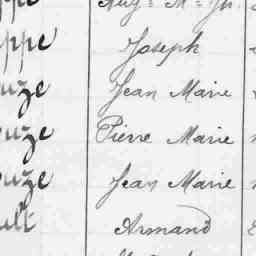 ppe Joseph
ouze Jean Marie
ouze Pierre Marie
ouze Jean Marie
ult Armand